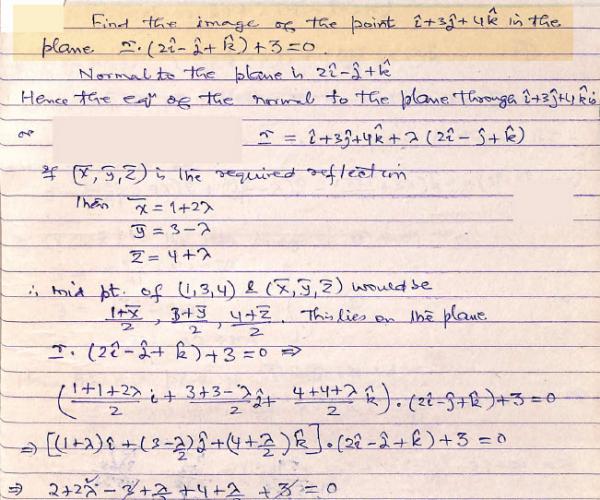 Find the image of the point î+3ĵ+4k̂ in the
plane r̄.(2î-ĵ+k̂)+3=0.
Normal to the plane is 2î-ĵ+k̂
Hence the eqⁿ of the normal to the plane through î+3ĵ+4k̂ is
or r̄ = î+3ĵ+4k̂+λ(2î-ĵ+k̂)
If (x̄,ȳ,z̄) is the required reflection
Then x̄=1+2λ
ȳ=3-λ
z̄=4+λ
∴ mid pt. of (1,3,4) & (x̄,ȳ,z̄) would be
(1+x̄)/2, (3+ȳ)/2, (4+z̄)/2. This lies on the plane
r̄.(2î-ĵ+k̂)+3=0 ⇒
((1+1+2λ)/2 î + (3+3-λ)/2 ĵ + (4+4+λ)/2 k̂).(2î-ĵ+k̂)+3=0
⇒ [(1+λ)î+(3-λ/2)ĵ+(4+λ/2)k̂].(2î-ĵ+k̂)+3=0
⇒ 2+2λ-3+λ/2+4+λ/2+3=0